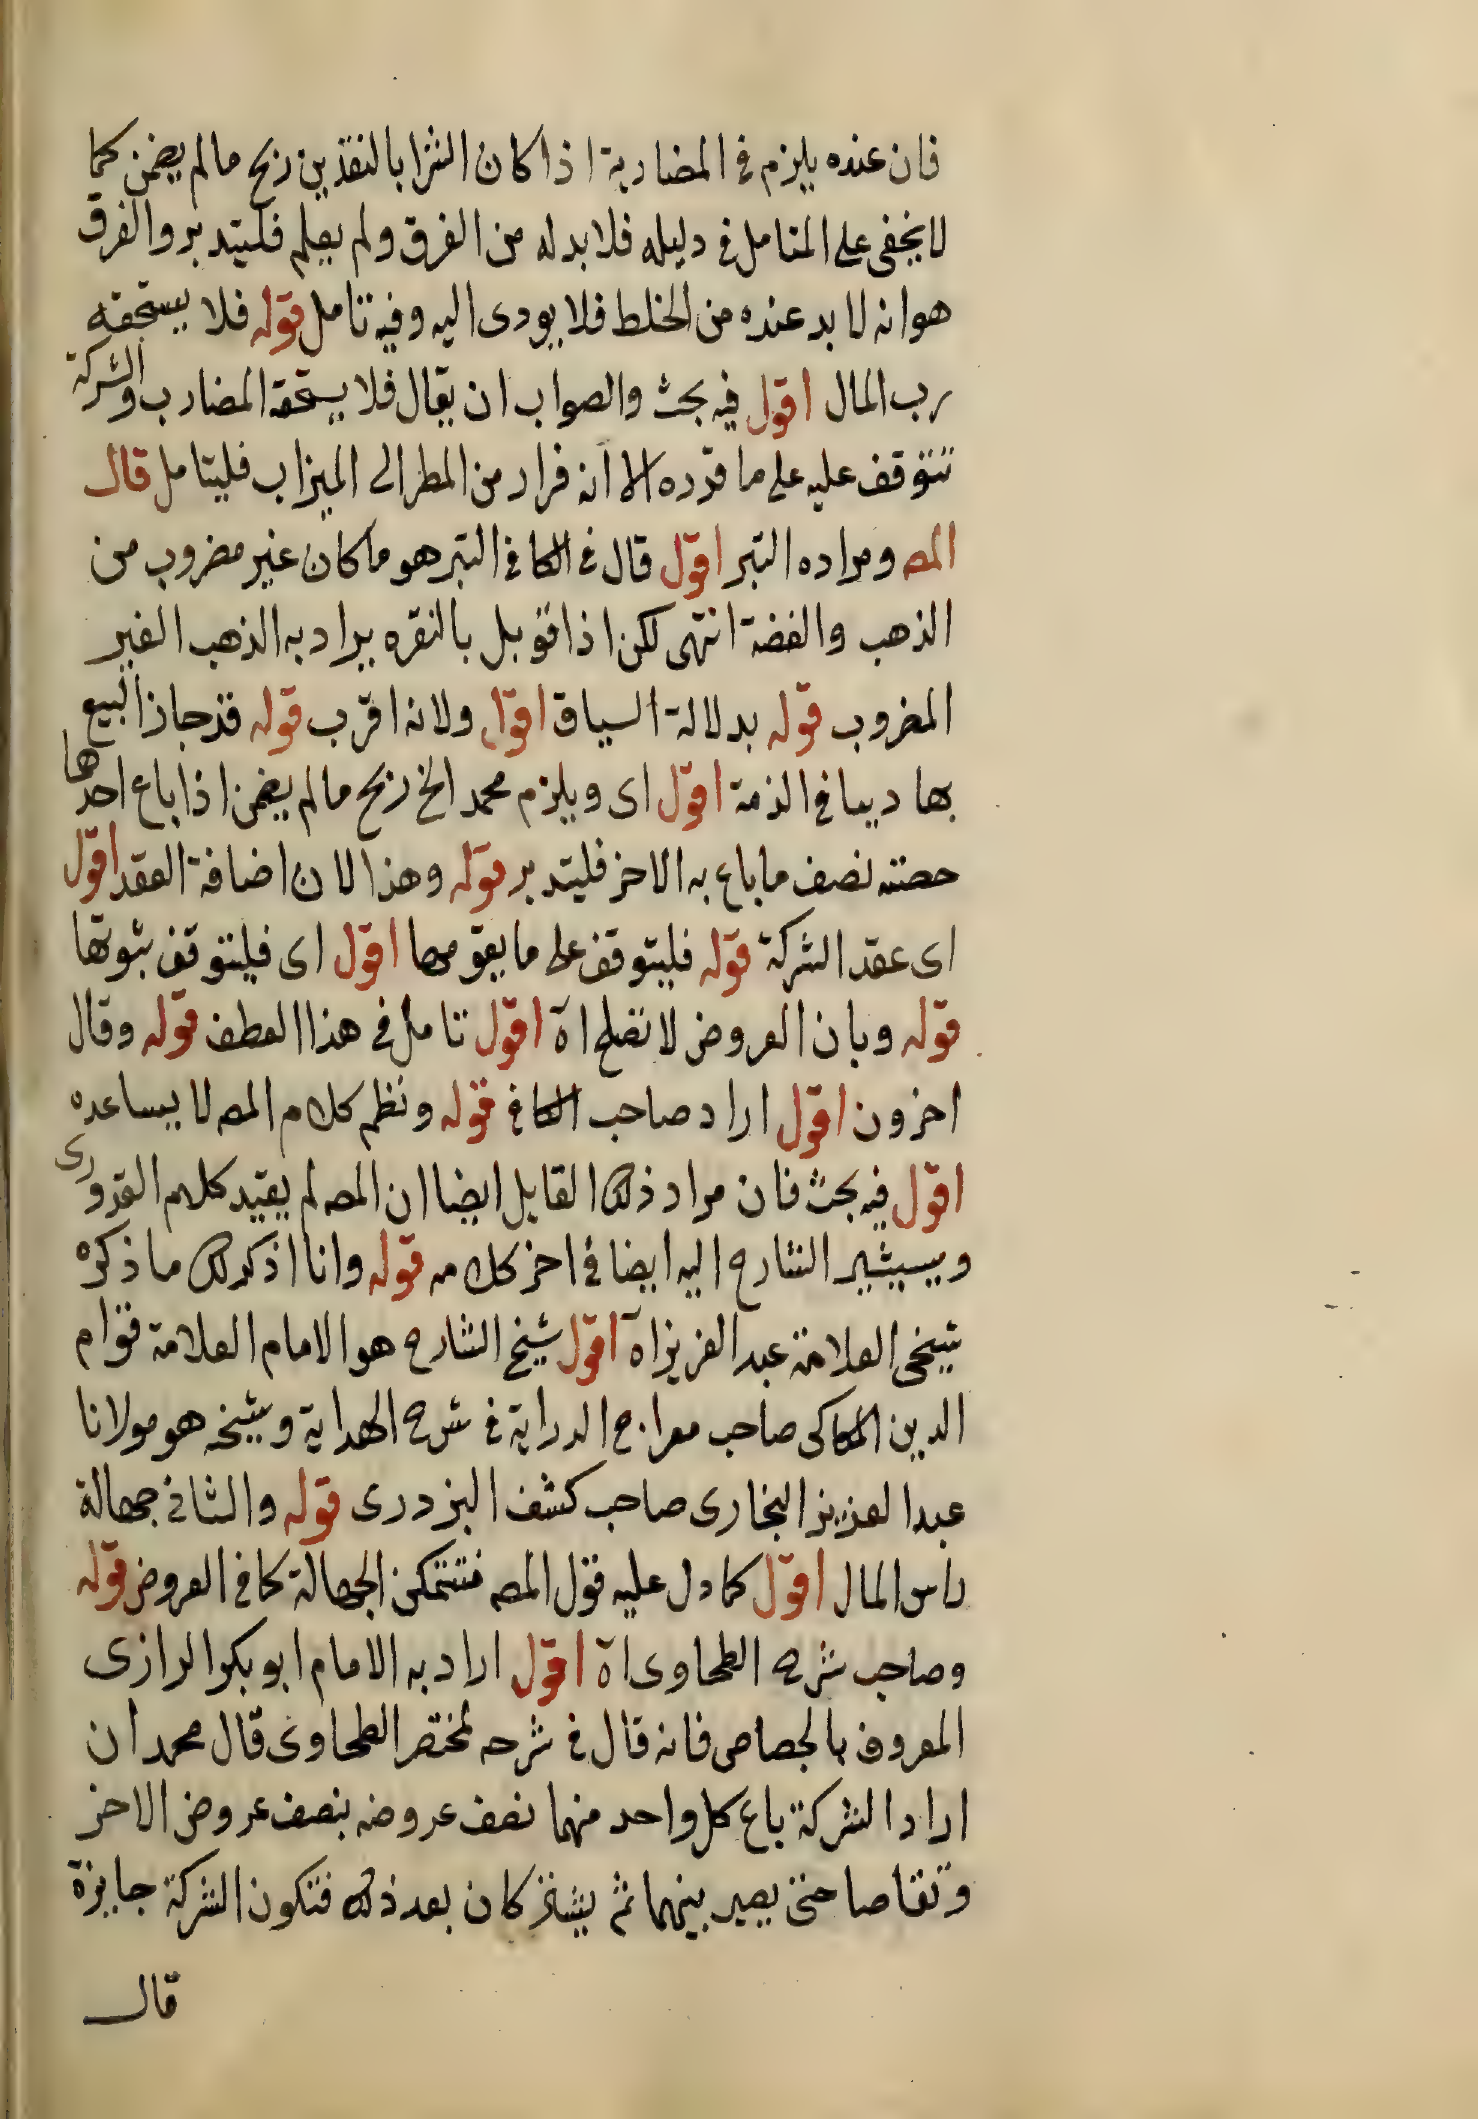 فان عنده يلزم في المضاربة اذا كان الشرا بالنقدين ربح مالم يضمن كما
لا يخفى على المتامل في دليله فلا بد له من الفرق ولم يعلم فليتدبر والفرق
هو انه لا بد عنده من الخلط فلا يودى اليه وفيه تامل قوله فلا يستحقه
رب المال اقول فيه بحث والصواب ان يقال فلا يستحقه المضارب والشركة
تتوقف عليه على ما قرره الا انه فرار من المطر الى الميزاب فليتامل قال
المص ومراده التبر اقول قال في الكافي التبر هو ما كان غير مضروب من
الذهب والفضة انتهى لكن اذا قوبل بالنقره يراد به الذهب الغير
المضروب قوله بدلالة السياق اقول ولانه اقرب قوله قد جاز البيع
بها دينا في الذمة اقول اى ويلزم محمد الخ ربح مالم يضمن اذا باع احدها
حصته نصف ما باع به الاخر فليتدبر قوله وهذا لان اضافة العقد اقول
اى عقد الشركة قوله فليتوقف على ما يقومها اقول اى فليتوقف ثبوتها
قوله وبان العروض لا تصلح اه اقول تامل في هذا العطف قوله وقال
اخرون اقول اراد صاحب الكافي قوله ونظم كلام المص لا يساعده
اقول فيه بحث فان مراد ذلك القايل ايضا ان المص لم يقيد كلام القدورى
ويسيشير الشارح اليه ايضا في اخر كلامه قوله وانا اذكر لك ما ذكره
شيخى العلامة عبد العزيز اه اقول شيخ الشارح هو الامام العلامة قوام
الدين الكاكى صاحب معراج الدراية في شرح الهداية وشيخه هو مولانا
عبد العزيز البخارى صاحب كشف البزدرى قوله والثاني جهالة
راس المال اقول كما دل عليه قول المص فتتمكن الجهالة كما في العروض قوله
وصاحب شرح الطحاوى اه اقول اراد به الامام ابو بكر الرازى
المعروف بالجصاص فانه قال في شرحه لمختصر الطحاوى قال محمد ان
اراد الشركة باع كل واحد منهما نصف عروضه بنصف عروض الاخر
وتقاصا حتى يصير بينهما ثم يشتركان بعد ذلك فتكون الشركة جايزة
قال